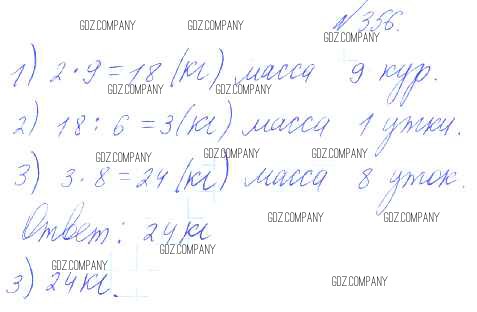 №356.
1) 2·9=18 (кг) масса 9 кур.
2) 18:6=3(кг) масса 1 утки.
3) 3·8=24 (кг) масса 8 уток.
Ответ: 24кг
3) 24кг.
GDZ.COMPANY GDZ.COMPANY
GDZ.COMPANY
GDZ.COMPANY GDZ.COMPANY
GDZ.COMPANY GDZ.COMPANY GDZ.COMPANY
GDZ.COMPANY GDZ.COMPANY
GDZ.COMPANY
GDZ.COMPANY
GDZ.COMPANY